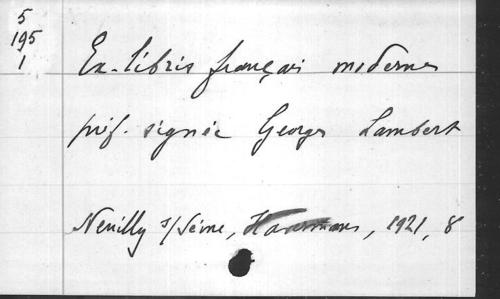 5
195
1
Ex-libris français modernes
préf. signée Georges Lambert
Neuilly s/Seine, 1921, 8